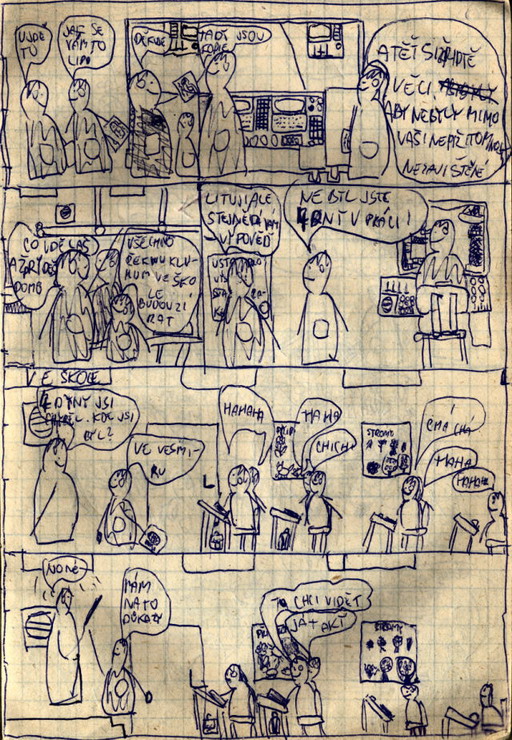 UJDE
TO
JAK SE
VÁM TO
LÍBÍ
DĚKUJE
TADY JSOU
KOPIE
VĚCI
ABY NEBYLY MIMO
VAŠI NEPŘÍTOMNOST
NEZAVIŠTĚNÍ
CO UDĚLÁŠ
AŽ
DOMŮ
VŠECHNO
ŘEKNU KLU-
KUM VE ŠKO
LE
BUDOU ZÍ
RAT
LITUJI, ALE
STEJNĚ DÁM
VÝPOVĚĎ
NEBYL JSTE
4 DNY V PRÁCI!
VE ŠKOLE
4 DNY JSI
CHYBĚL. KDE JSI
BYL?
VE VESMÍ-
RU
HAHAHA
HAHA
CHICHI
STROMY
CHÁ CHÁ
HAHA
HAHAHA
NO NE
MÁM
NA TO
DŮKAZY
TO CHCI VIDĚT
JÁ TAKY
STROMY